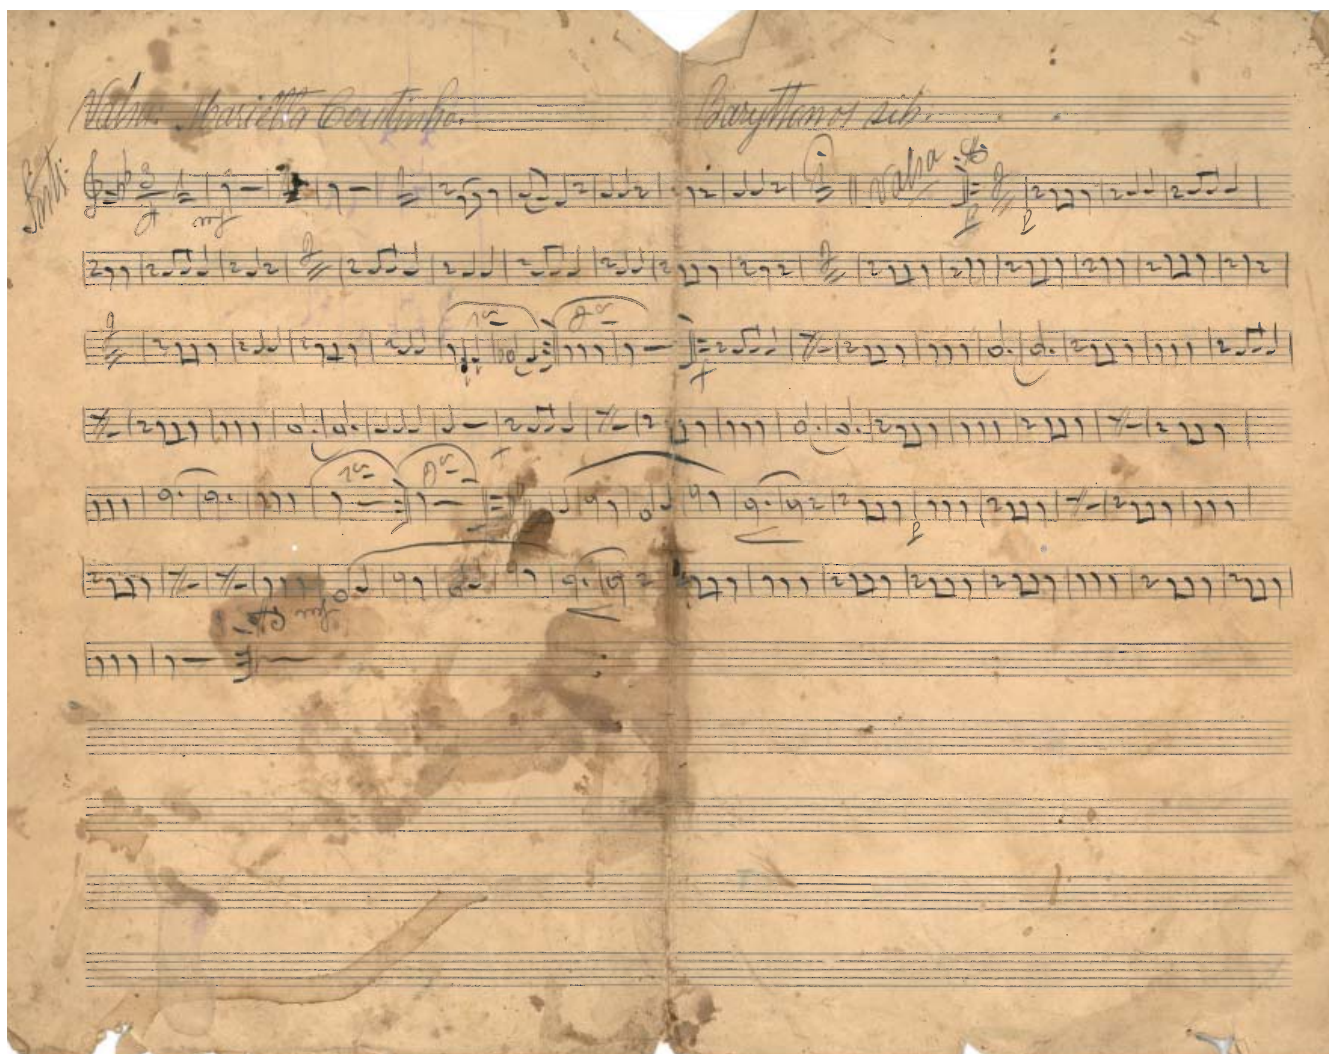 Valsa Marietta Coutinho. Barythonos sib.
Intr. Valsa
1ª 2ª
1ª 2ª
Fim